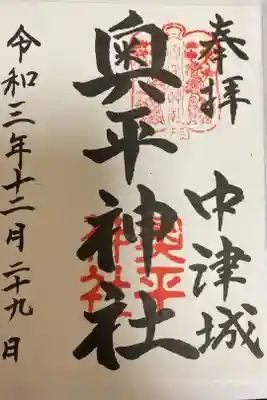 奉拝
中津城
奥平神社
奥平
神社
令和三年十二月二十九日